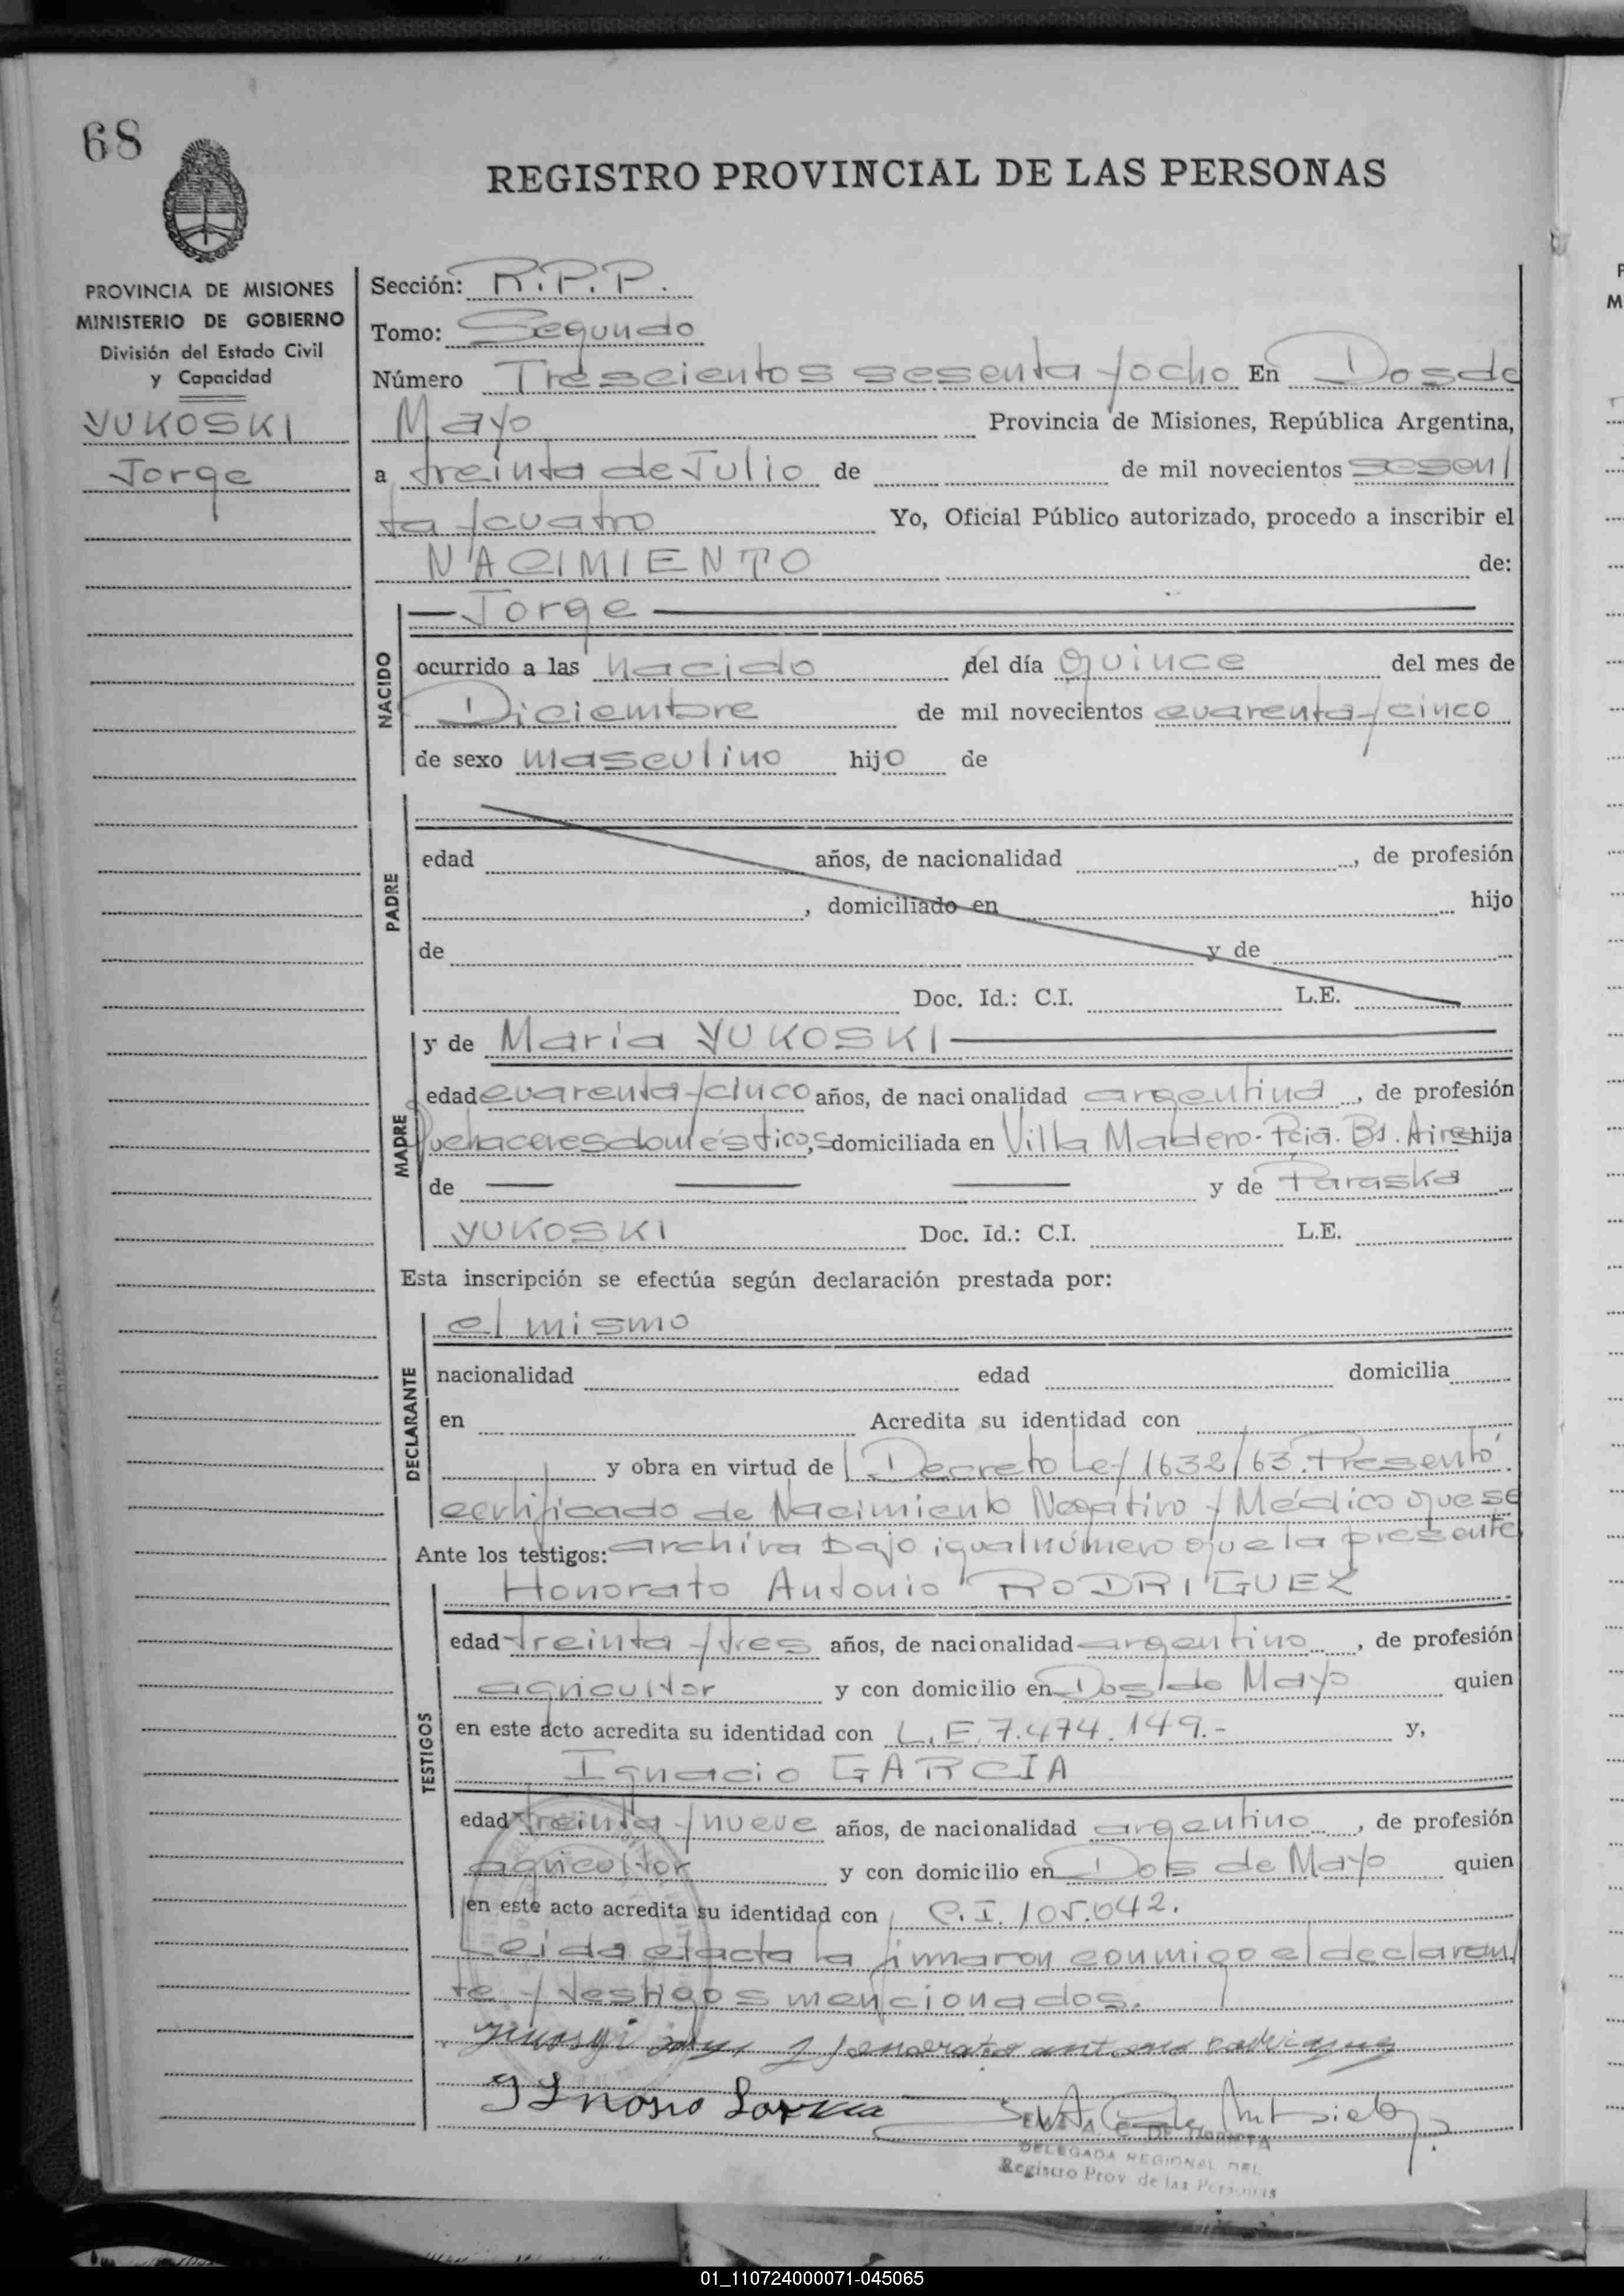 68
REGISTRO PROVINCIAL DE LAS PERSONAS
PROVINCIA DE MISIONES
MINISTERIO DE GOBIERNO
División del Estado Civil
y Capacidad
YUKOSKI
Jorge
Sección: R.P.P.
Tomo: Segundo
Número Trescientos sesenta y ocho En Dos de
Mayo Provincia de Misiones, República Argentina,
a treinta de Julio de de mil novecientos sesen
ta y cuatro Yo, Oficial Público autorizado, procedo a inscribir el
NACIMIENTO de:
NACIDO
Jorge
ocurrido a las nacido del día quince del mes de
Diciembre de mil novecientos cuarenta y cinco
de sexo masculino hijo de
PADRE
edad años, de nacionalidad , de profesión
, domiciliado en hijo
de y de
Doc. Id.: C.I. L.E.
MADRE
y de María YUKOSKI
edad cuarenta y cinco años, de naci onalidad argentina , de profesión
Quehaceres domésticos, domiciliada en Villa Madero - Pcia. Bs. Aires hija
de — — — y de Paraska
YUKOSKI Doc. Id.: C.I. L.E.
Esta inscripción se efectúa según declaración prestada por:
DECLARANTE
el mismo
nacionalidad edad domicilia
en Acredita su identidad con
y obra en virtud de Decreto Ley 1632/63. Presentó
certificado de Nacimiento Negativo y Médico que se
Ante los testigos: archiva bajo igual número que la presente
TESTIGOS
Honorato Antonio RODRIGUEZ
edad treinta y tres años, de nacionalidad argentino , de profesión
agricultor y con domicilio en Dos de Mayo quien
en este acto acredita su identidad con L.E. 7.474.149.- y,
Ignacio GARCIA
edad treinta y nueve años, de nacionalidad argentino , de profesión
agricultor y con domicilio en Dos de Mayo quien
en este acto acredita su identidad con C.I. 105.042.
Leida el acta la firmaron conmigo el declaran
te y testigos mencionados.
DELEGADA REGIONAL DEL
Registro Prov. de las Personas
01_110724000071-045065